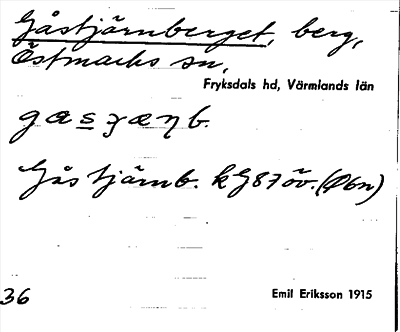 Gåstjärnberget, berg,
Östmarks sn,
Fryksdals hd, Värmlands län
Gåstjärnb. kG87öv. (Öbn)
36
Emil Eriksson 1915